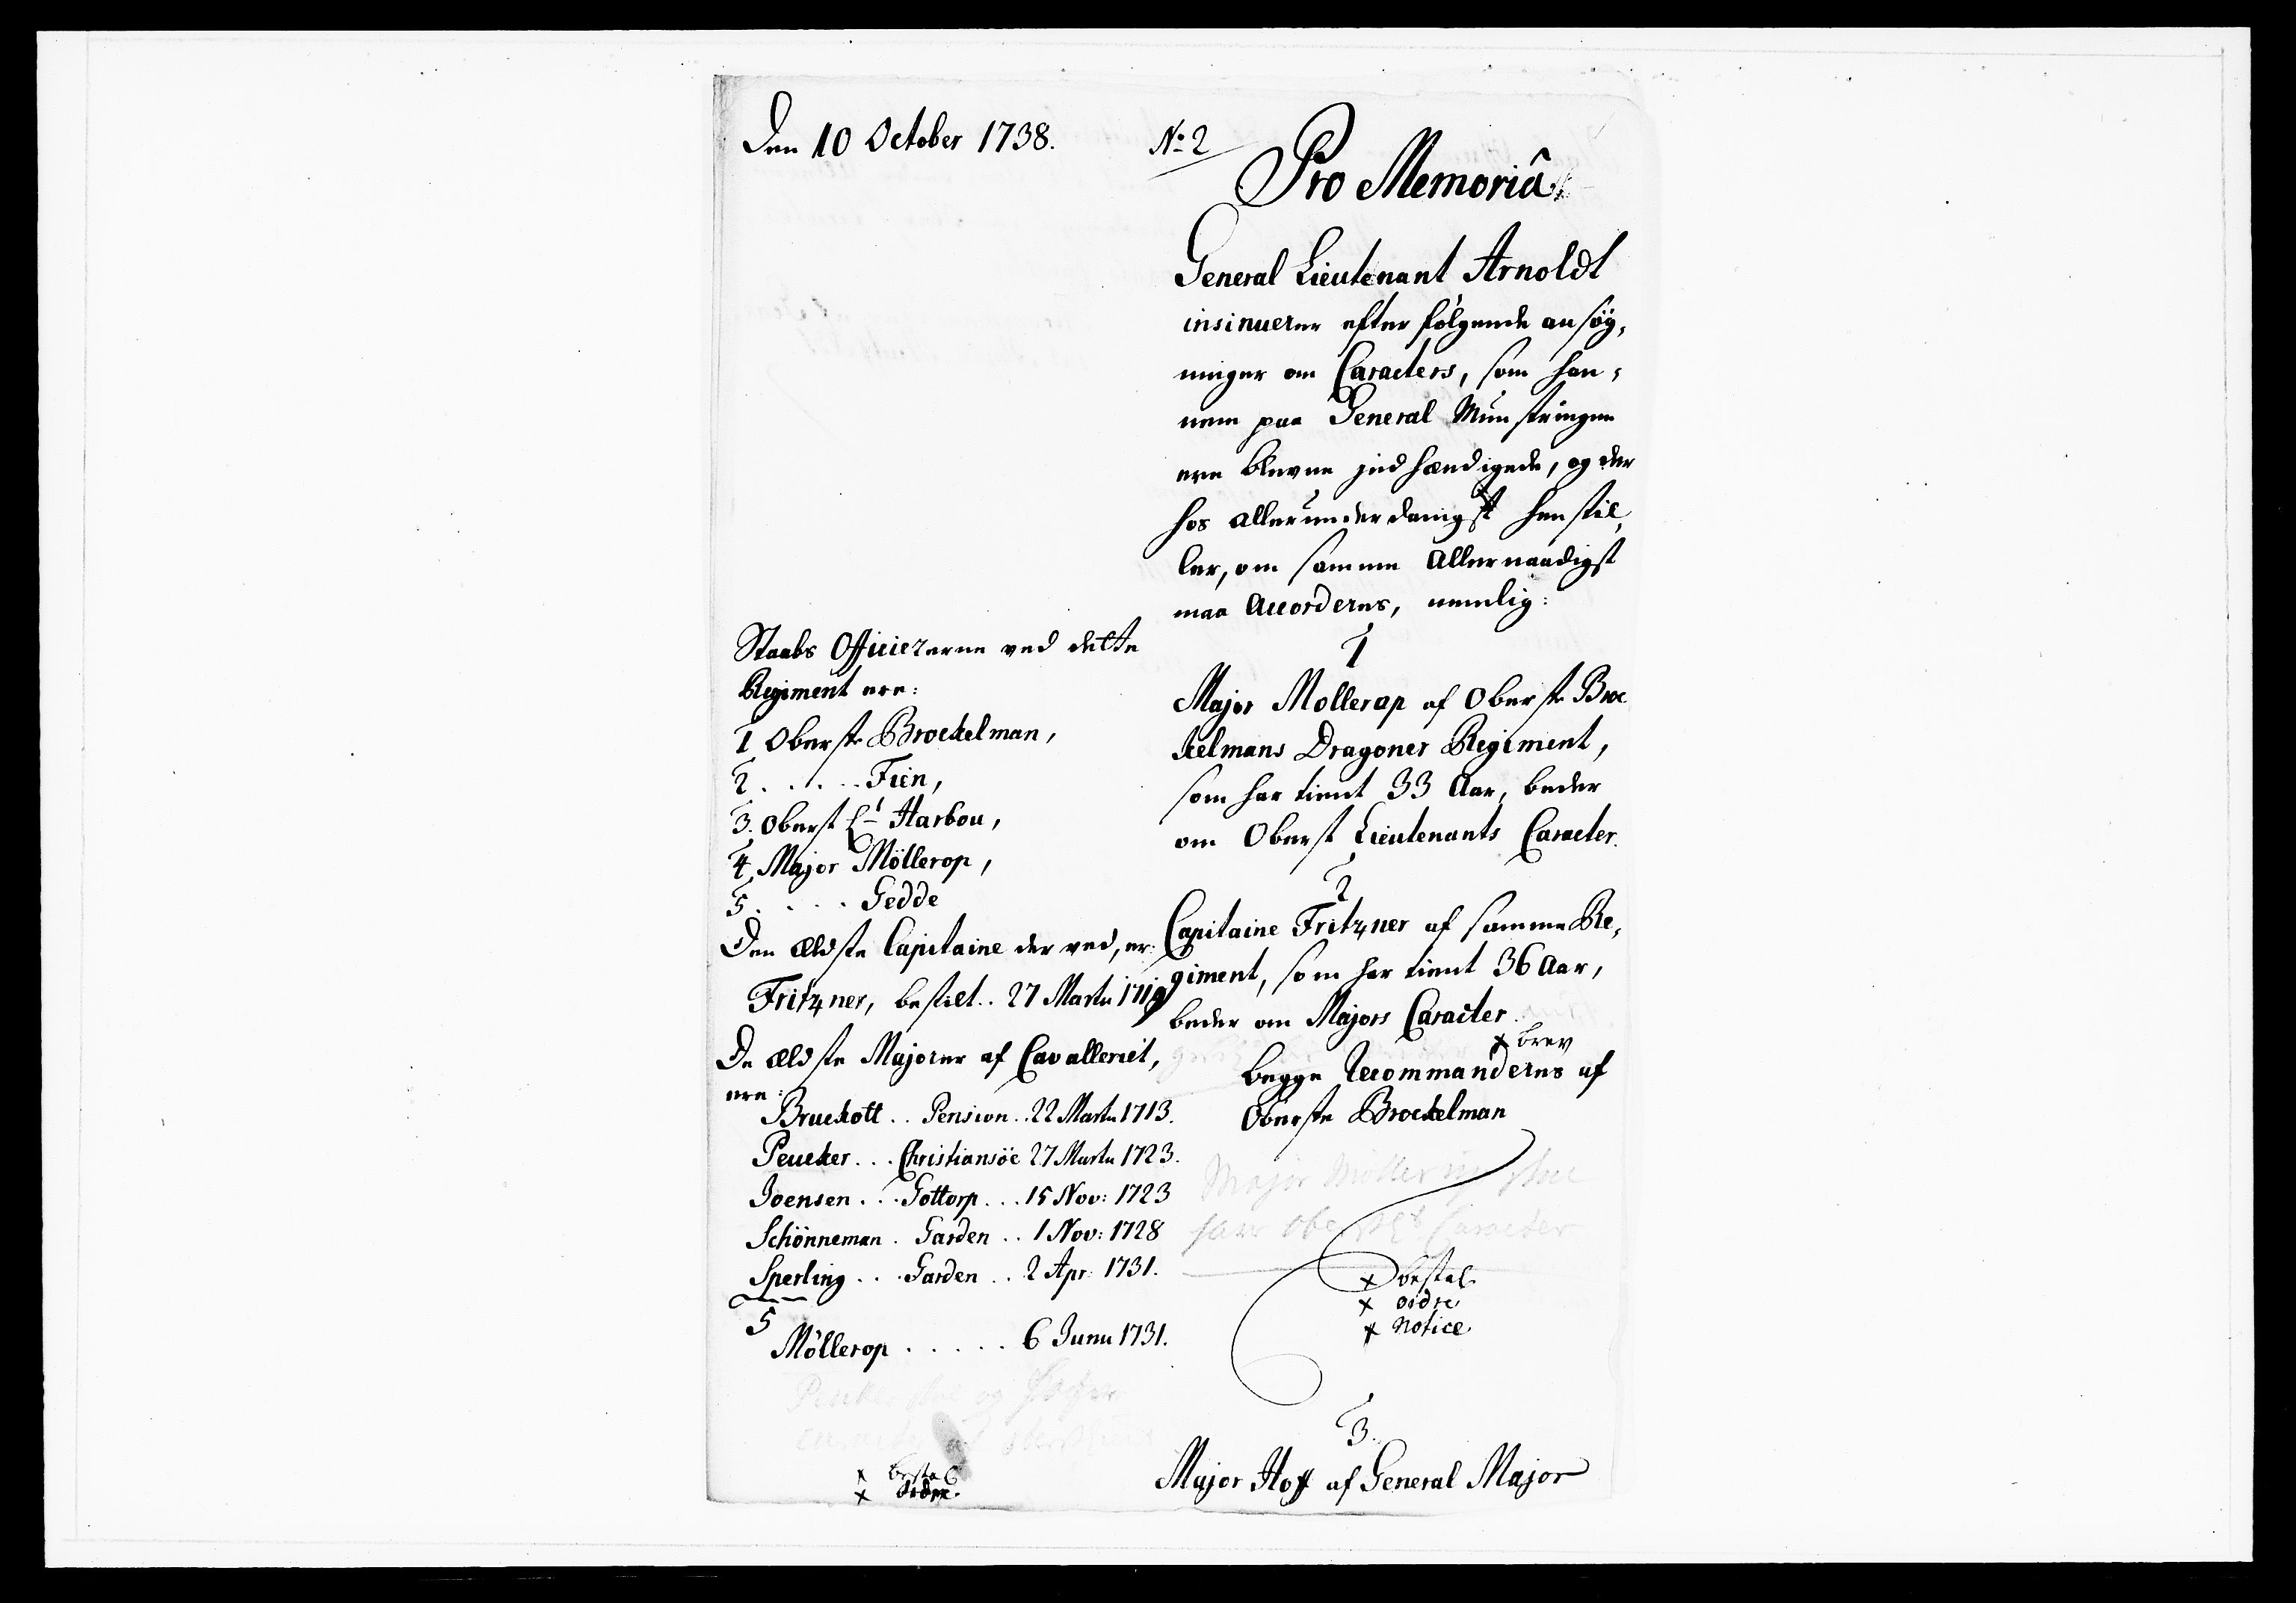 Den 10 October 1738.
No: 2
Pro Memoriâ
General Lieutenant Arnoldt
insinuerer efterfölgende ansög,
ninger om Caracters, som han,
nem paa General Munstringen
ere blevne jndhændigede, og der
hos allerunderdanigst henstil,
ler, om samme Allernaadigst
maa accorderes, nemlig:
1
Major Mollerop af Oberste Broc
kelmans Dragoner Regiment,
som har tient 33 Aar, beder
om Oberst Lieutenants Caracter.
2
Capitaine Fritzner af samme Re,
giment, som har tient 36 Aar,
beder om Majors Caracter.
x brev
begge recommanderes af
Oberste Brockelman
Major Möllerop skal
have Oberst Lt Caracter
x bestal.
x ordre
x Notice
3.
Major Hoff af General Major
Staabs Officiererne ved dette
Regiment ere:
1 Oberste Brockelman,
2 . . . . . Fien,
3. Oberst Lt Harbou,
4. Major Möllerop,
5. . . . . Gedde
Den ældste Capitaine der ved, er:
Fritzner, bestilt . . 27 Martii 1719
De ældste Majorer af Cavalleriet,
ere:
Bruckott . . Pension . . 22 Martii 1713.
Peucker . . . Christiansöe 27 Martii 1723.
Joensen . . . Gottorp . . . 15 Nov: 1723
Schönneman . Garden . . 1 Nov: 1728
Sperling . . . Garden . . 2 Apr: 1731.
5
Möllerop . . . . . 6 Junii 1731.
Peucker skal og
x bestal
x ordre.